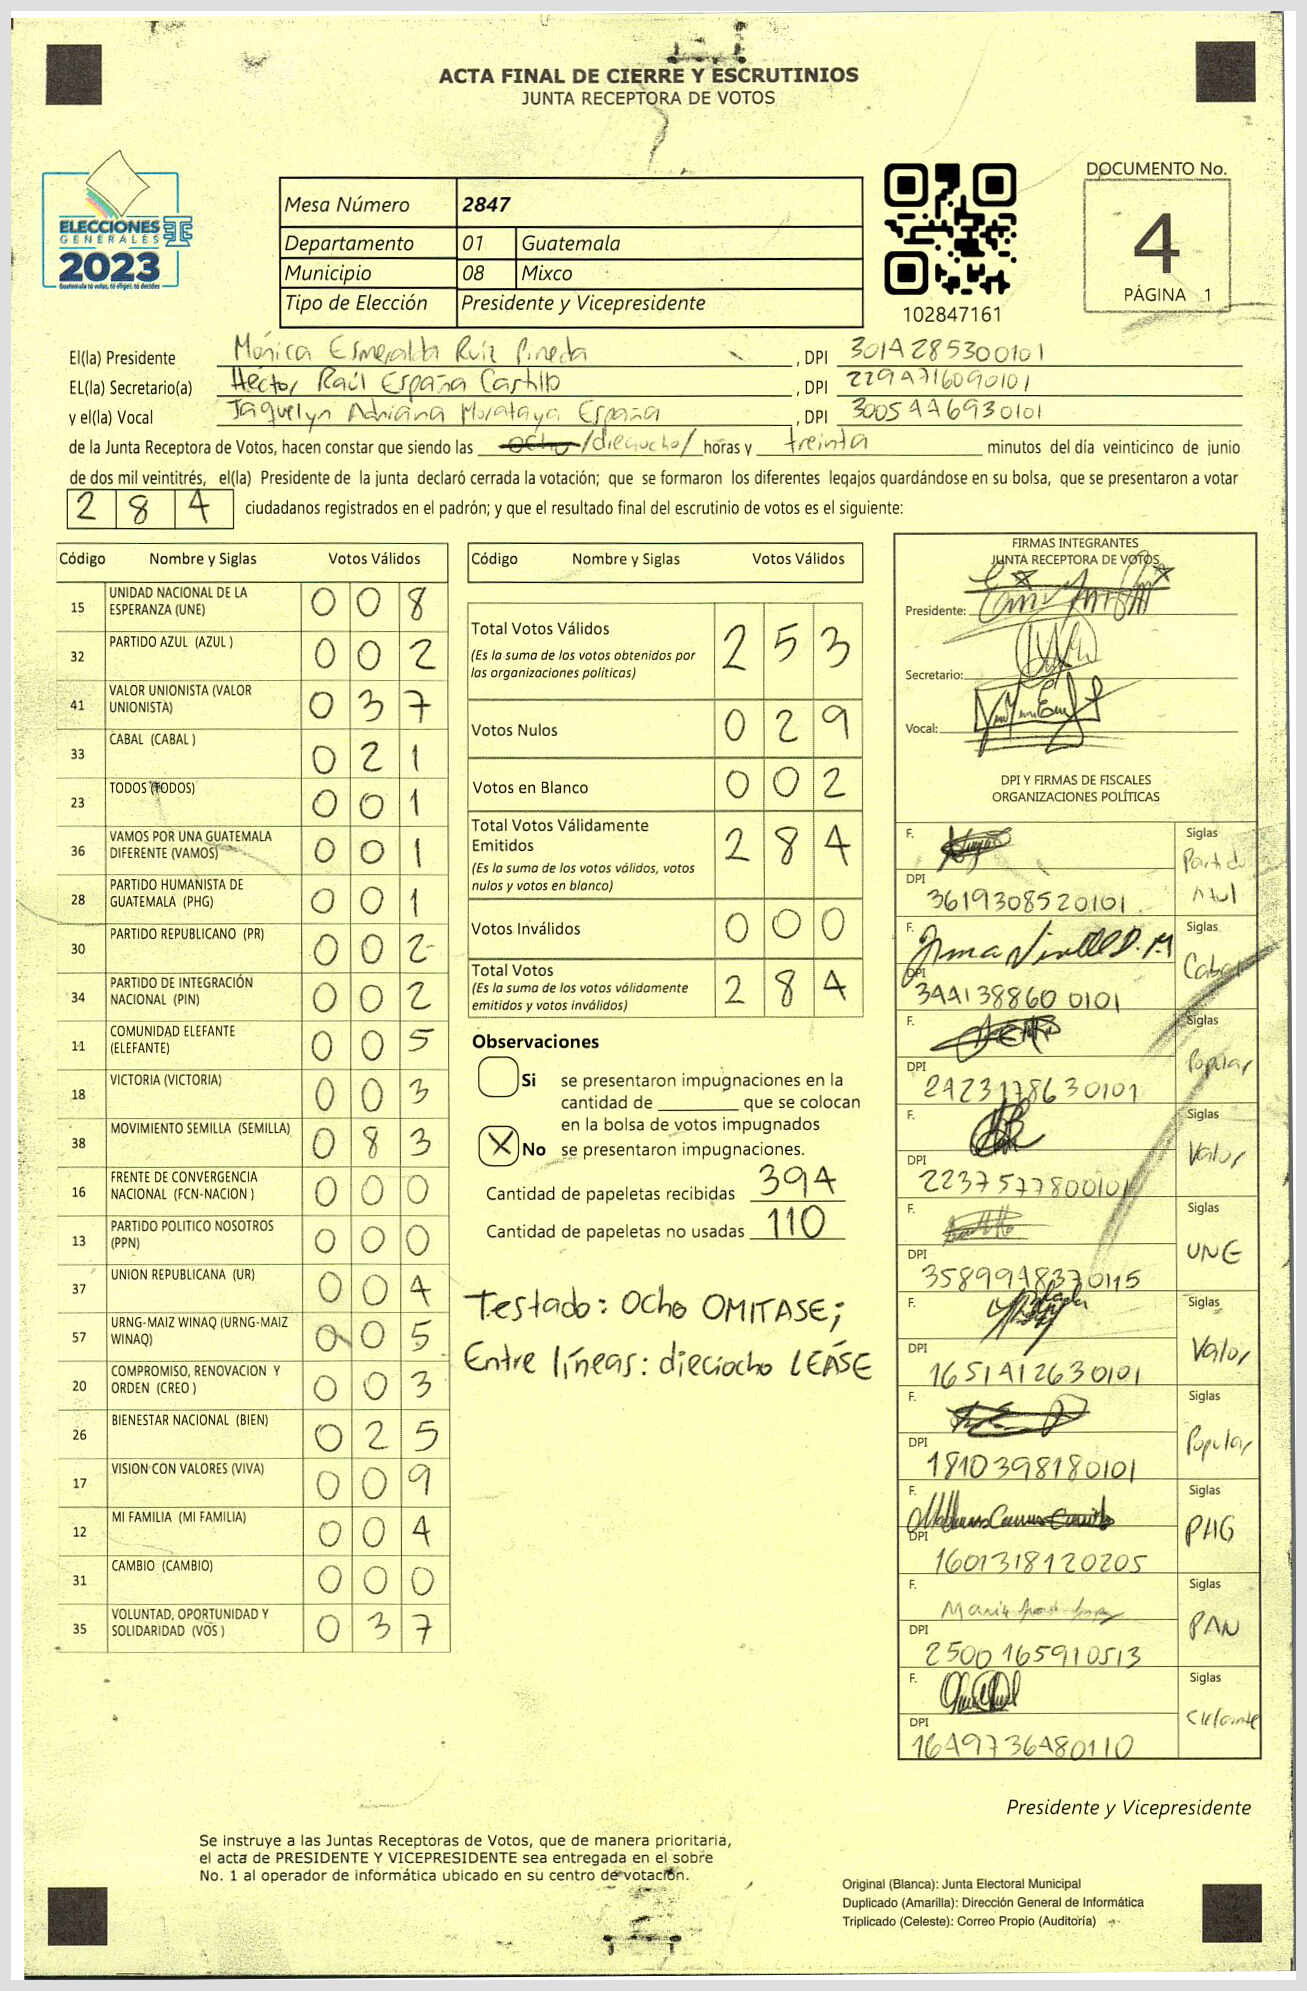 ACTA FINAL DE CIERRE Y ESCRUTINIOS
JUNTA RECEPTORA DE VOTOS
ELECCIONES
GENERALES
2023
Guatemala tú votas, tú eliges, tú decides
Mesa Número 2847
Departamento 01 Guatemala
Municipio 08 Mixco
Tipo de Elección Presidente y Vicepresidente
102847161
DOCUMENTO No.
4
PÁGINA 1
El(la) Presidente Mónica Esmeralda Ruiz Pineda, DPI 3014285300101
EL(la) Secretario(a) Héctor Raúl España Castillo, DPI 2294716090101
y el(la) Vocal Jaquelyn Adriana Morataya España, DPI 3005446930101
de la Junta Receptora de Votos, hacen constar que siendo las ocho /dieciocho/ horas y treinta minutos del día veinticinco de junio
de dos mil veintitrés, el(la) Presidente de la junta declaró cerrada la votación; que se formaron los diferentes legajos quardándose en su bolsa, que se presentaron a votar
284 ciudadanos registrados en el padrón; y que el resultado final del escrutinio de votos es el siguiente:
Código Nombre y Siglas Votos Válidos
15 UNIDAD NACIONAL DE LA ESPERANZA (UNE) 008
32 PARTIDO AZUL (AZUL ) 002
41 VALOR UNIONISTA (VALOR UNIONISTA) 037
33 CABAL (CABAL ) 021
23 TODOS (TODOS) 001
36 VAMOS POR UNA GUATEMALA DIFERENTE (VAMOS) 001
28 PARTIDO HUMANISTA DE GUATEMALA (PHG) 001
30 PARTIDO REPUBLICANO (PR) 002
34 PARTIDO DE INTEGRACIÓN NACIONAL (PIN) 002
11 COMUNIDAD ELEFANTE (ELEFANTE) 005
18 VICTORIA (VICTORIA) 003
38 MOVIMIENTO SEMILLA (SEMILLA) 083
16 FRENTE DE CONVERGENCIA NACIONAL (FCN-NACION ) 000
13 PARTIDO POLITICO NOSOTROS (PPN) 000
37 UNION REPUBLICANA (UR) 004
57 URNG-MAIZ WINAQ (URNG-MAIZ WINAQ) 005
20 COMPROMISO, RENOVACION Y ORDEN (CREO ) 003
26 BIENESTAR NACIONAL (BIEN) 025
17 VISION CON VALORES (VIVA) 009
12 MI FAMILIA (MI FAMILIA) 004
31 CAMBIO (CAMBIO) 000
35 VOLUNTAD, OPORTUNIDAD Y SOLIDARIDAD (VOS ) 037
Código Nombre y Siglas Votos Válidos
Total Votos Válidos 253
(Es la suma de los votos obtenidos por
las organizaciones políticas)
Votos Nulos 029
Votos en Blanco 002
Total Votos Válidamente
Emitidos 284
(Es la suma de los votos válidos, votos
nulos y votos en blanco)
Votos Inválidos 000
Total Votos 284
(Es la suma de los votos válidamente
emitidos y votos inválidos)
Observaciones
Si se presentaron impugnaciones en la
cantidad de ________ que se colocan
en la bolsa de votos impugnados
X No se presentaron impugnaciones.
Cantidad de papeletas recibidas 394
Cantidad de papeletas no usadas 110
Testado: Ocho OMITASE;
Entre líneas: dieciocho LEÁSE
FIRMAS INTEGRANTES
JUNTA RECEPTORA DE VOTOS
Presidente:
Secretario:
Vocal:
DPI Y FIRMAS DE FISCALES
ORGANIZACIONES POLÍTICAS
F. Siglas Partido Azul
DPI 3619308520101
F. Siglas Cabal
DPI 3441388600101
F. Siglas Popular
DPI 2423178630101
F. Siglas Valor
DPI 2237577800101
F. Siglas UNE
DPI 3589948370115
F. Siglas Valor
DPI 1651412630101
F. Siglas Popular
DPI 1810398180101
F. Siglas PHG
DPI 1601318120205
F. Siglas PAN
DPI 2500165910513
F. Siglas
DPI 1649736480110
Presidente y Vicepresidente
Se instruye a las Juntas Receptoras de Votos, que de manera prioritaria,
el acta de PRESIDENTE Y VICEPRESIDENTE sea entregada en el sobre
No. 1 al operador de informática ubicado en su centro de votación.
Original (Blanca): Junta Electoral Municipal
Duplicado (Amarilla): Dirección General de Informática
Triplicado (Celeste): Correo Propio (Auditoría)